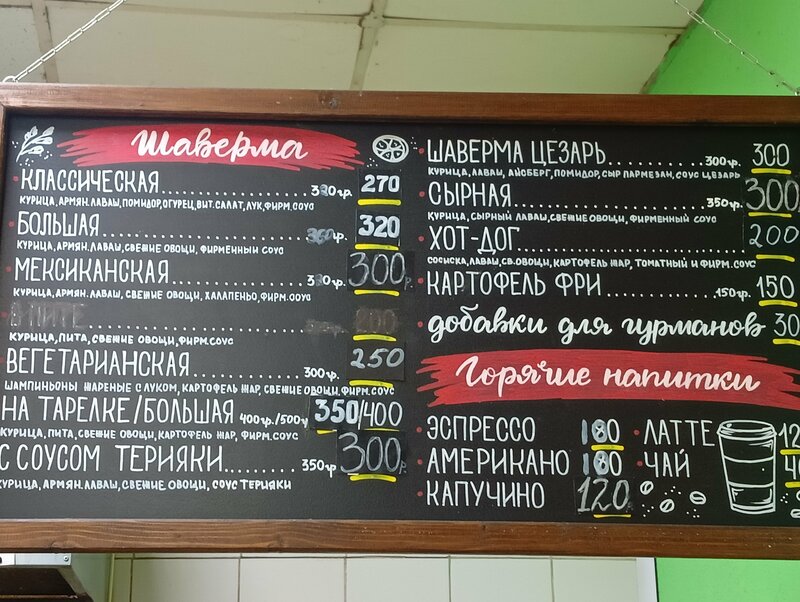 Шаверма
КЛАССИЧЕСКАЯ 320гр. 270
КУРИЦА, АРМЯН. ЛАВАШ, ПОМИДОР, ОГУРЕЦ, ВИТ. САЛАТ, ЛУК, ФИРМ. СОУС
БОЛЬШАЯ 360гр. 320
КУРИЦА, АРМЯН. ЛАВАШ, СВЕЖИЕ ОВОЩИ, ФИРМЕННЫЙ СОУС
МЕКСИКАНСКАЯ 320гр. 300
КУРИЦА, АРМЯН. ЛАВАШ, СВЕЖИЕ ОВОЩИ, ХАЛАПЕНЬО, ФИРМ. СОУС
В ПИТЕ
КУРИЦА, ПИТА, СВЕЖИЕ ОВОЩИ, ФИРМ. СОУС
ВЕГЕТАРИАНСКАЯ 300гр. 250
ШАМПИНЬОНЫ ЖАРЕНЫЕ С ЛУКОМ, КАРТОФЕЛЬ ЖАР, СВЕЖИЕ ОВОЩИ, ФИРМ. СОУС
НА ТАРЕЛКЕ/БОЛЬШАЯ 400гр./500г 350/400
КУРИЦА, ПИТА, СВЕЖИЕ ОВОЩИ, КАРТОФЕЛЬ ЖАР, ФИРМ. СОУС
С СОУСОМ ТЕРИЯКИ 350гр. 300р
КУРИЦА, АРМЯН. ЛАВАШ, СВЕЖИЕ ОВОЩИ, СОУС ТЕРИЯКИ
ШАВЕРМА ЦЕЗАРЬ 300гр. 300
КУРИЦА, ЛАВАШ, АЙСБЕРГ, ПОМИДОР, СЫР ПАРМЕЗАН, СОУС ЦЕЗАРЬ
СЫРНАЯ 350гр. 300
КУРИЦА, СЫРНЫЙ ЛАВАШ, СВЕЖИЕ ОВОЩИ, ФИРМЕННЫЙ СОУС
ХОТ-ДОГ 200
СОСИСКА, ЛАВАШ, СВ. ОВОЩИ, КАРТОФЕЛЬ ЖАР, ТОМАТНЫЙ И ФИРМ. СОУС
КАРТОФЕЛЬ ФРИ 150гр. 150
добавки для гурманов 30
Горячие напитки
ЭСПРЕССО 180 ЛАТТЕ
АМЕРИКАНО 180 ЧАЙ
КАПУЧИНО 120